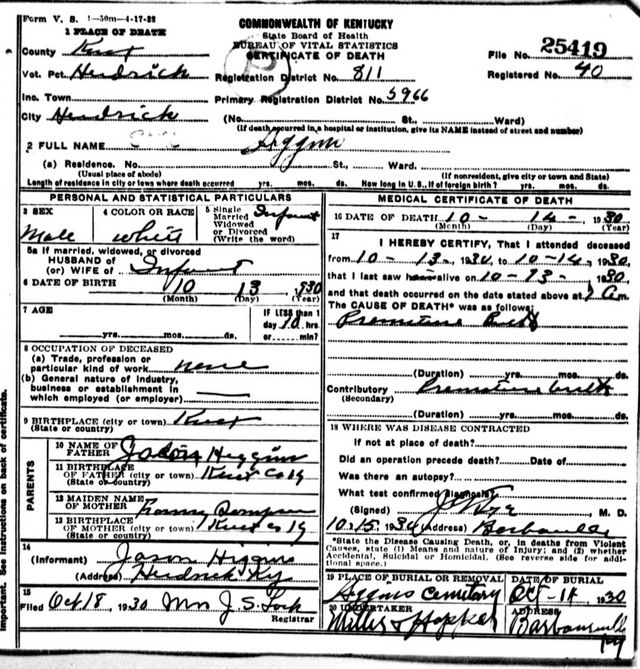 Form V. S. 1-50m-4-17-28
1 PLACE OF DEATH
COMMONWEALTH OF KENTUCKY
State Board of Health
BUREAU OF VITAL STATISTICS
CERTIFICATE OF DEATH
County Knox
File No. 25419
Vot. Pct. Hendrick
Registration District No. 811
Registered No. 40
Inc. Town
Primary Registration District No. 5966
City Hendrick
(No. St., Ward)
(If death occurred in a hospital or institution, give its NAME instead of street and number)
2 FULL NAME Higgins
(a) Residence. No. St., Ward.
(Usual place of abode) (If nonresident, give city or town and State)
Length of residence in city or town where death occurred yrs. mos. ds. How long in U.S., if of foreign birth? yrs. mos. ds.
PERSONAL AND STATISTICAL PARTICULARS
3 SEX Male
4 COLOR OR RACE white
5 Single Married Widowed or Divorced (Write the word) Infant
5a If married, widowed, or divorced
HUSBAND of
(or) WIFE of Infant
6 DATE OF BIRTH 10 13 930
(Month) (Day) (Year)
7 AGE
yrs. mos. ds.
IF LESS than 1
day 10 hrs
or min?
8 OCCUPATION OF DECEASED
(a) Trade, profession or
particular kind of work none
(b) General nature of industry,
business or establishment in
which employed (or employer)
9 BIRTHPLACE (city or town) Knox
(State or country)
PARENTS
10 NAME OF FATHER Jason Higgins
11 BIRTHPLACE OF FATHER (city or town) Knox Co Ky
(State or country)
12 MAIDEN NAME OF MOTHER
13 BIRTHPLACE OF MOTHER (city or town) Knox Co Ky
(State or country)
14
(Informant) Jason Higgins
(Address) Hendrick Ky
15
Filed Oct 18, 1930 Mrs J. S. Lock
Registrar
MEDICAL CERTIFICATE OF DEATH
16 DATE OF DEATH 10- 14-, 1930
(Month) (Day) (Year)
17
I HEREBY CERTIFY, That I attended deceased
from 10-13-, 1930, to 10-14, 1930,
that I last saw h alive on 10-13-, 1930,
and that death occurred on the date stated above at 1 am.
The CAUSE OF DEATH* was as follows:
Premature Birth
(Duration) yrs. mos. ds.
Contributory Premature birth
(Secondary)
(Duration) yrs. mos. ds.
18 WHERE WAS DISEASE CONTRACTED
If not at place of death?
Did an operation precede death? Date of
Was there an autopsy?
What test confirmed diagnosis?
(Signed) M. D.
10.15, 1930 (Address) Barbourville
*State the Disease Causing Death, or, in deaths from Violent
Causes, state (1) Means and nature of Injury; and (2) whether
Accidental, Suicidal or Homicidal. (See reverse side for addi-
tional space.)
19 PLACE OF BURIAL OR REMOVAL
Higgins Cemetery
DATE OF BURIAL
Oct-14 1930
20 UNDERTAKER
Miller & Hopper
ADDRESS
Barbourville Ky
Important. See instructions on back of certificate.